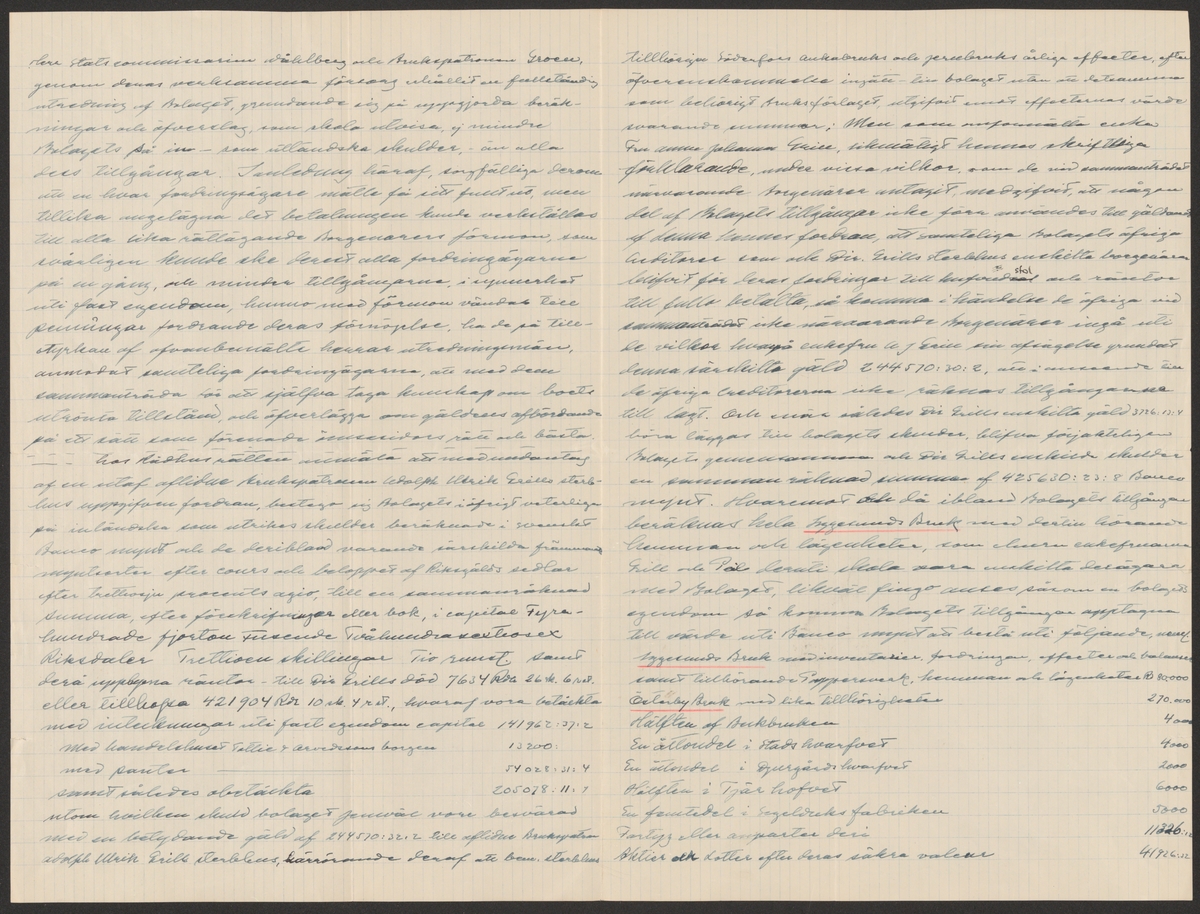 Herr Statscommissarien Wåhlberg och Brukspatronen Groen,
genom deras verksamma försorg erhållit en fullständig
utredning af Bolaget, grundande sig på uppgjorda beräk-
ningar och öfverslag, som skola utvisa, ej mindre
Bolagets så in- som utländska skulder, - än alla
dess tillgångar. I anledning häraf, sorgfälliga derom
att en hvar fordringsägare måtte få sitt fullt ut, men
tillika angelägna det betalningen kunde verkställas
till alla lika rättägande Borgenärers förmon, som
svårligen kunde ske derest alla fordringsägarne
på en gång, och minder tillgångarna, i synnerhet
uti fast egendom, hunno med förmon vändas till
penningar fordrande deras förnöjelse, ha de på till-
styrkan af ofvanbemälte herrar utredningsmän,
anmodat samteliga fordringsägarna, att med dem
sammanträda för att sjelfva taga kunskap om boets
utrönta tillstånd, och öfverlägga om gäldens afbördande
på ett sätt som förenade ömsesidors rätt och bästa.
- - - hos Rådhusrätten anmäla att med undantag
af en utaf aflidne Brukspatronen Adolph Ulrik Grills sterb-
hus uppgifven fordran, bestego sig Bolagets i öfrigt veterliga
så inländska som utrikes skulder beräknade i svenskt
Banco mynt och de deribland varande särskilda främmande
myntsorter efter cours och beloppet af Riksgälds sedlar
efter trettiosju procents agio, till en sammanräknad
summa, efter förskrifningar eller bok, i capital Fyra-
hundrade fjorton tusende Tvåhundrasextiosex
Riksdaler Trettioen skillingar Tio runst. samt
derå upplupna räntor - till Dir Grills död 7634 Rdr 26 sk. 6 rst.
eller tillhopa 421904 Rdr 10 sk. 4 rst., hvaraf vora betäckta
med inteckningar uti fast egendom capital 141962:37:2
med handelshuset Tottie & Arvedsons borgen 13200:
med panter 54028:31:4
samt således obetäckta 205078:11:7
utom hvilken skuld bolaget jemväl vore besvärad
med en betydande gäld af 244570:32:2 till aflidne Brukspatron
Adolph Ulrik Grills sterbhus, härrörande deraf att bem. sterbhus
tillhöriga Söderfors Ankarbruks och jernbruks årliga effecter, efter
öfverenskommelse ingått till bolaget utan att detsamma
som behörigt Bruksförlaget, utgifvit emot effecternas värde
svarande summor; Men som omförmälta enka
Fru Anna Johanna Grill, likmätigt hennes skriftliga
förklarande, under vissa vilkor, som de vid sammanträdet
närvarande Borgenärer antagit medgifvit, att någon
del af Bolagets tillgångar icke förr användes till gäldande
af denna hennes fordran, att samteliga Bolagets öfriga
Creditorer som och Dir. Grills sterbhus enskilta borgenärer
blifvit för deras fordringar till hufvudstol och räntor
till fullo betalta, så komma i händelse de öfriga vid
sammanträdet icke närvarande Borgenärer ingå uti
de vilkor hvarpå enkefru A J Grill sin afsägelse grundat
denna särskilta gäld 244570:30:2, att i anseende till
de öfriga Creditorerna icke räknas tillgångarna
till last. Och när således Dir Grills enskilta gäld 3726:13:4
böra läggas till bolagets skulder, blifva förjakteligen
Bolagets gemensamma och Dir Grills enskilda skulder
en sammanräknad summa af 425630:23:8 Banco
mynt. Hvaremot och då ibland Bolagets tillgångar
beräknas hela Iggesunds Bruk med dertill hörande
hemman och lägenheter, som ehuru enkefruarna
Grill och Pil deruti skola vara enskilta delägare
med Bolaget, likväl lingo anses såsom en bolagets
egendom så komma Bolagets tillgångar upptagna
till värde uti Banco mynt att bestå uti följande,
Iggesunds Bruk med inventarier, fordringar, effecter och balancer
samt tillhörande Tegperswerk, hemman och lägenheter 80,000
Österby Bruk med lika tillhörigheter 270,000
Hälften af Bukbruken 4000
En åttondel i Stadshvarfvet 4000
En åttondel i Djurgårdshvarfvet 2000
Hälften i Tjärhofvet 6000
En femtedel i Segelduks fabriken 5000
Fartyg eller anparter deri 11326:12
Aktier och Lotter efter deras säkra valeur 41926:12